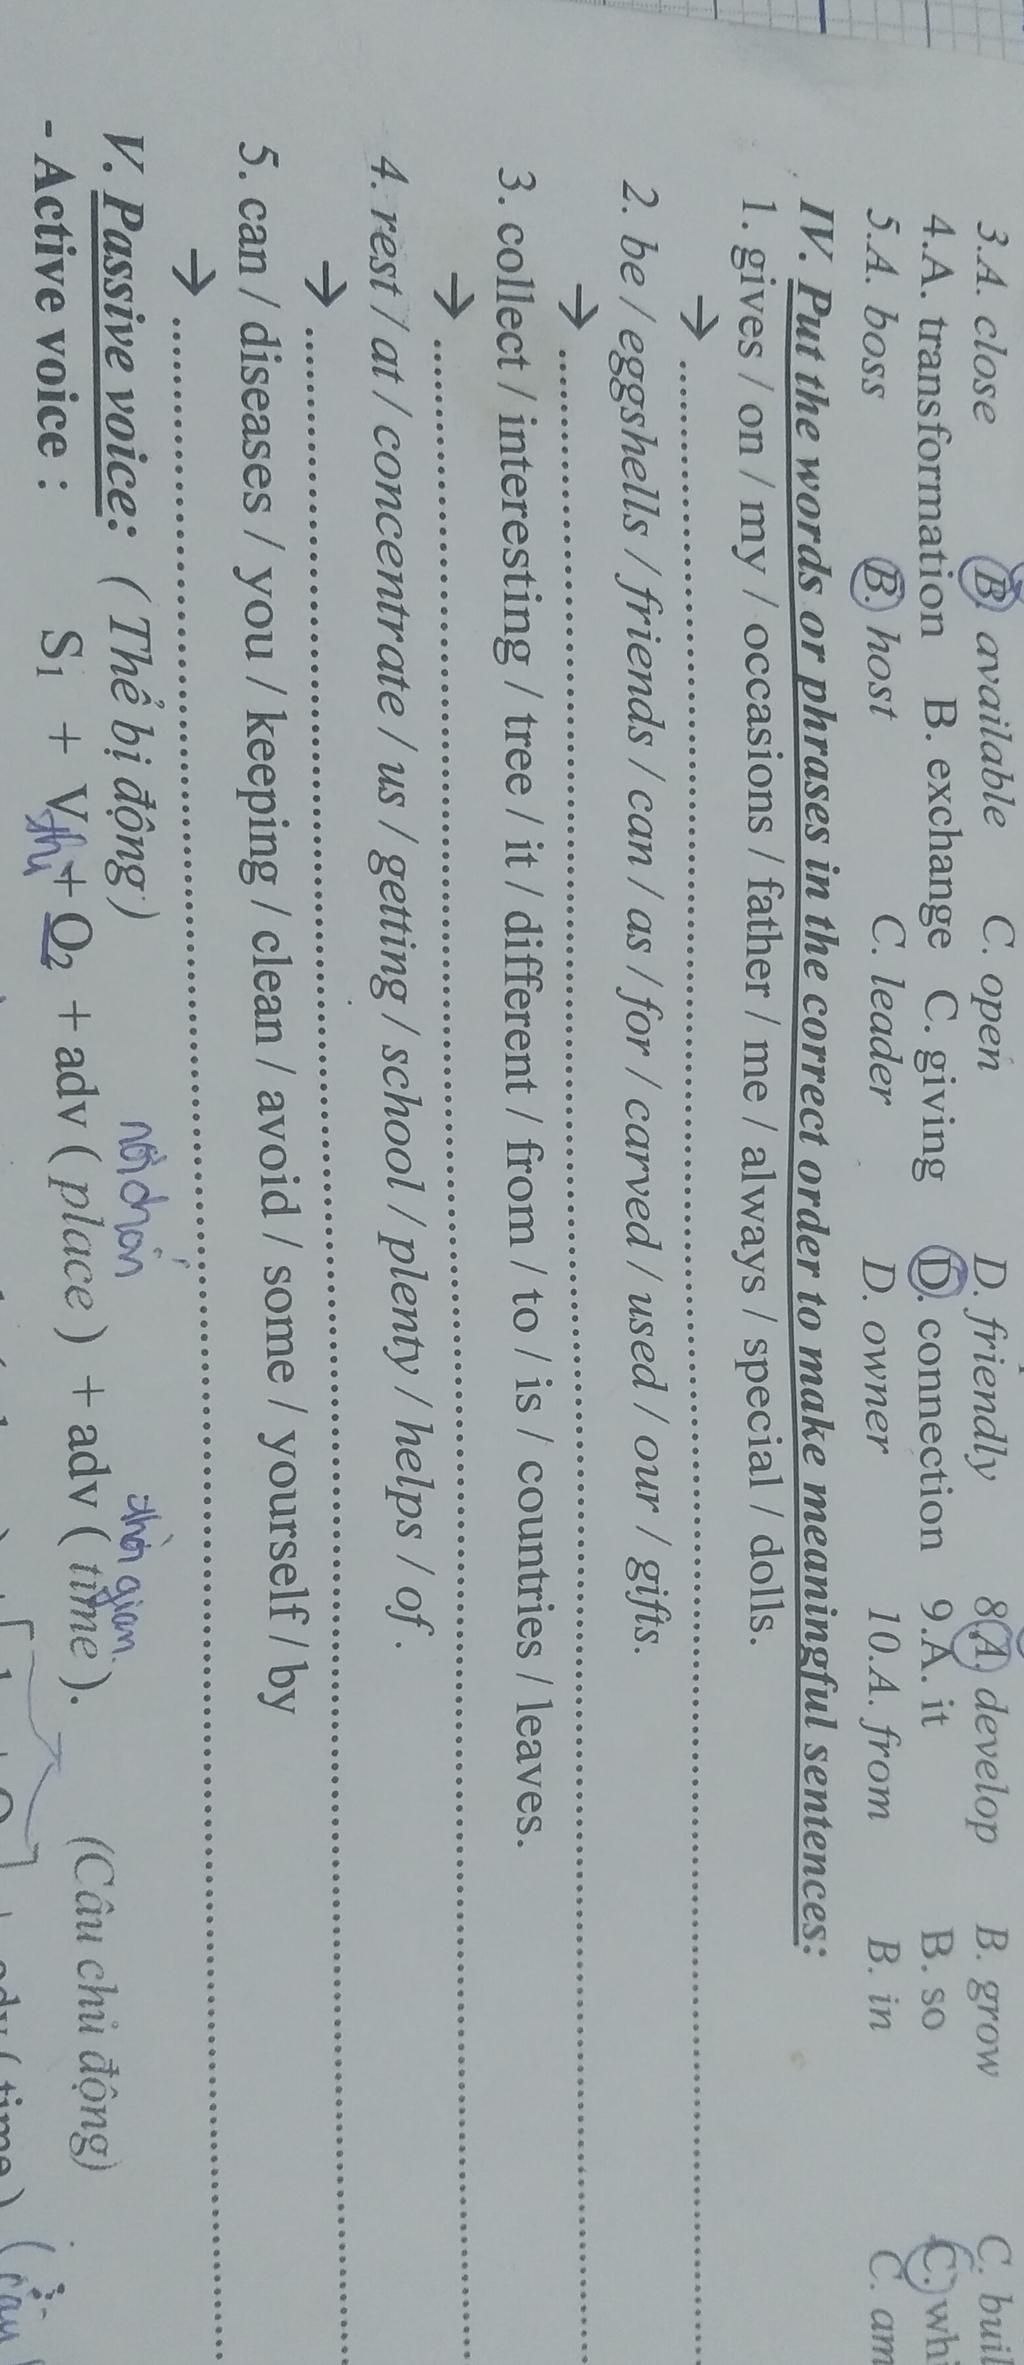 3.A. close B. available C. open D. friendly 8.A. develop B. grow C. buil
4.A. transformation B. exchange C. giving D. connection 9.A. it B. so C. whi
5.A. boss B. host C. leader D. owner 10.A. from B. in C. am
IV. Put the words or phrases in the correct order to make meaningful sentences:
1. gives / on / my / occasions / father / me / always / special / dolls.
→ ........................................................................
2. be / eggshells / friends / can / as / for / carved / used / our / gifts.
→ ........................................................................
3. collect / interesting / tree / it / different / from / to / is / countries / leaves.
→ ........................................................................
4. rest / at / concentrate / us / getting / school / plenty / helps / of .
→ ........................................................................
5. can / diseases / you / keeping / clean / avoid / some / yourself / by
→ ........................................................................
V. Passive voice: ( Thể bị động )
nơi chốn thời gian
- Active voice : S1 + V + O2 + adv ( place ) + adv ( time ). (Câu chủ động)